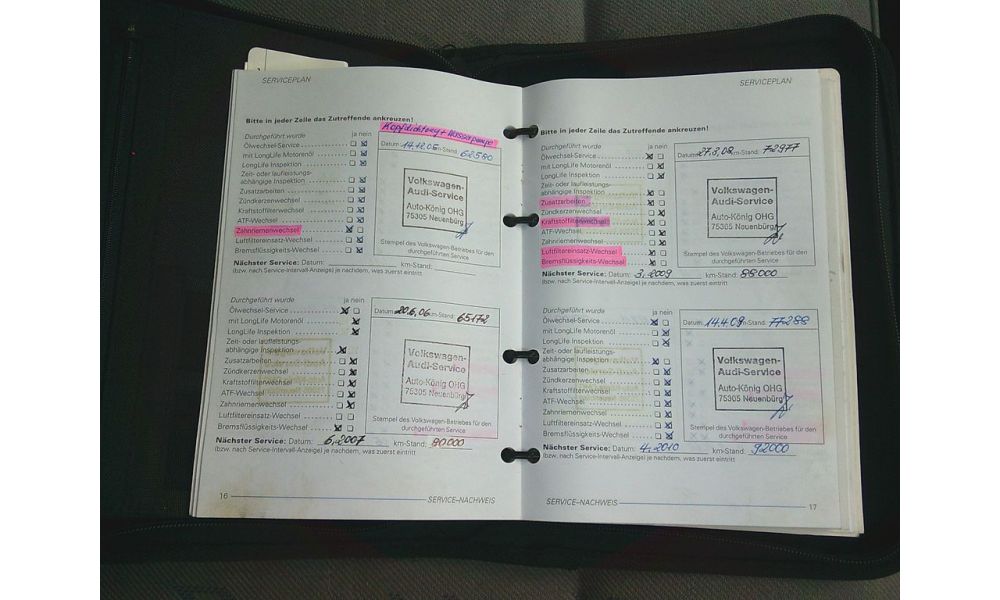 SERVICEPLAN
Bitte in jeder Zeile das Zutreffende ankreuzen!
Kopfdichtung + Wasserpumpe
Durchgeführt wurde ja nein
Ölwechsel-Service
mit LongLife Motorenöl
LongLife Inspektion
Zeit- oder laufleistungs-
abhängige Inspektion
Zusatzarbeiten
Zündkerzenwechsel
Kraftstofffilterwechsel
ATF-Wechsel
Zahnriemenwechsel
Luftfiltereinsatz-Wechsel
Bremsflüssigkeits-Wechsel
Datum: 14.12.05 km-Stand: 62580
Volkswagen-
Audi-Service
Auto-König OHG
75305 Neuenbürg
Stempel des Volkswagen-Betriebes für den
durchgeführten Service
Nächster Service: Datum: km-Stand:
(bzw. nach Service-Intervall-Anzeige) je nachdem, was zuerst eintritt
Durchgeführt wurde ja nein
Ölwechsel-Service
mit LongLife Motorenöl
LongLife Inspektion
Zeit- oder laufleistungs-
abhängige Inspektion
Zusatzarbeiten
Zündkerzenwechsel
Kraftstofffilterwechsel
ATF-Wechsel
Zahnriemenwechsel
Luftfiltereinsatz-Wechsel
Bremsflüssigkeits-Wechsel
Datum: 20.6.06 km-Stand: 65172
Volkswagen-
Audi-Service
Auto-König OHG
75305 Neuenbürg
Stempel des Volkswagen-Betriebes für den
durchgeführten Service
Nächster Service: Datum: 6.2007 km-Stand: 80000
(bzw. nach Service-Intervall-Anzeige) je nachdem, was zuerst eintritt
16 SERVICE–NACHWEIS
SERVICEPLAN
Bitte in jeder Zeile das Zutreffende ankreuzen!
Durchgeführt wurde ja nein
Ölwechsel-Service
mit LongLife Motorenöl
LongLife Inspektion
Zeit- oder laufleistungs-
abhängige Inspektion
Zusatzarbeiten
Zündkerzenwechsel
Kraftstofffilterwechsel
ATF-Wechsel
Zahnriemenwechsel
Luftfiltereinsatz-Wechsel
Bremsflüssigkeits-Wechsel
Datum: 27.3.08 km-Stand: 72977
Volkswagen-
Audi-Service
Auto-König OHG
75305 Neuenbürg
Stempel des Volkswagen-Betriebes für den
durchgeführten Service
Nächster Service: Datum: 3.2009 km-Stand: 88000
(bzw. nach Service-Intervall-Anzeige) je nachdem, was zuerst eintritt
Durchgeführt wurde ja nein
Ölwechsel-Service
mit LongLife Motorenöl
LongLife Inspektion
Zeit- oder laufleistungs-
abhängige Inspektion
Zusatzarbeiten
Zündkerzenwechsel
Kraftstofffilterwechsel
ATF-Wechsel
Zahnriemenwechsel
Luftfiltereinsatz-Wechsel
Bremsflüssigkeits-Wechsel
Datum: 14.4.09 km-Stand: 77288
Volkswagen-
Audi-Service
Auto-König OHG
75305 Neuenbürg
Stempel des Volkswagen-Betriebes für den
durchgeführten Service
Nächster Service: Datum: 4.2010 km-Stand: 92000
(bzw. nach Service-Intervall-Anzeige) je nachdem, was zuerst eintritt
SERVICE–NACHWEIS 17